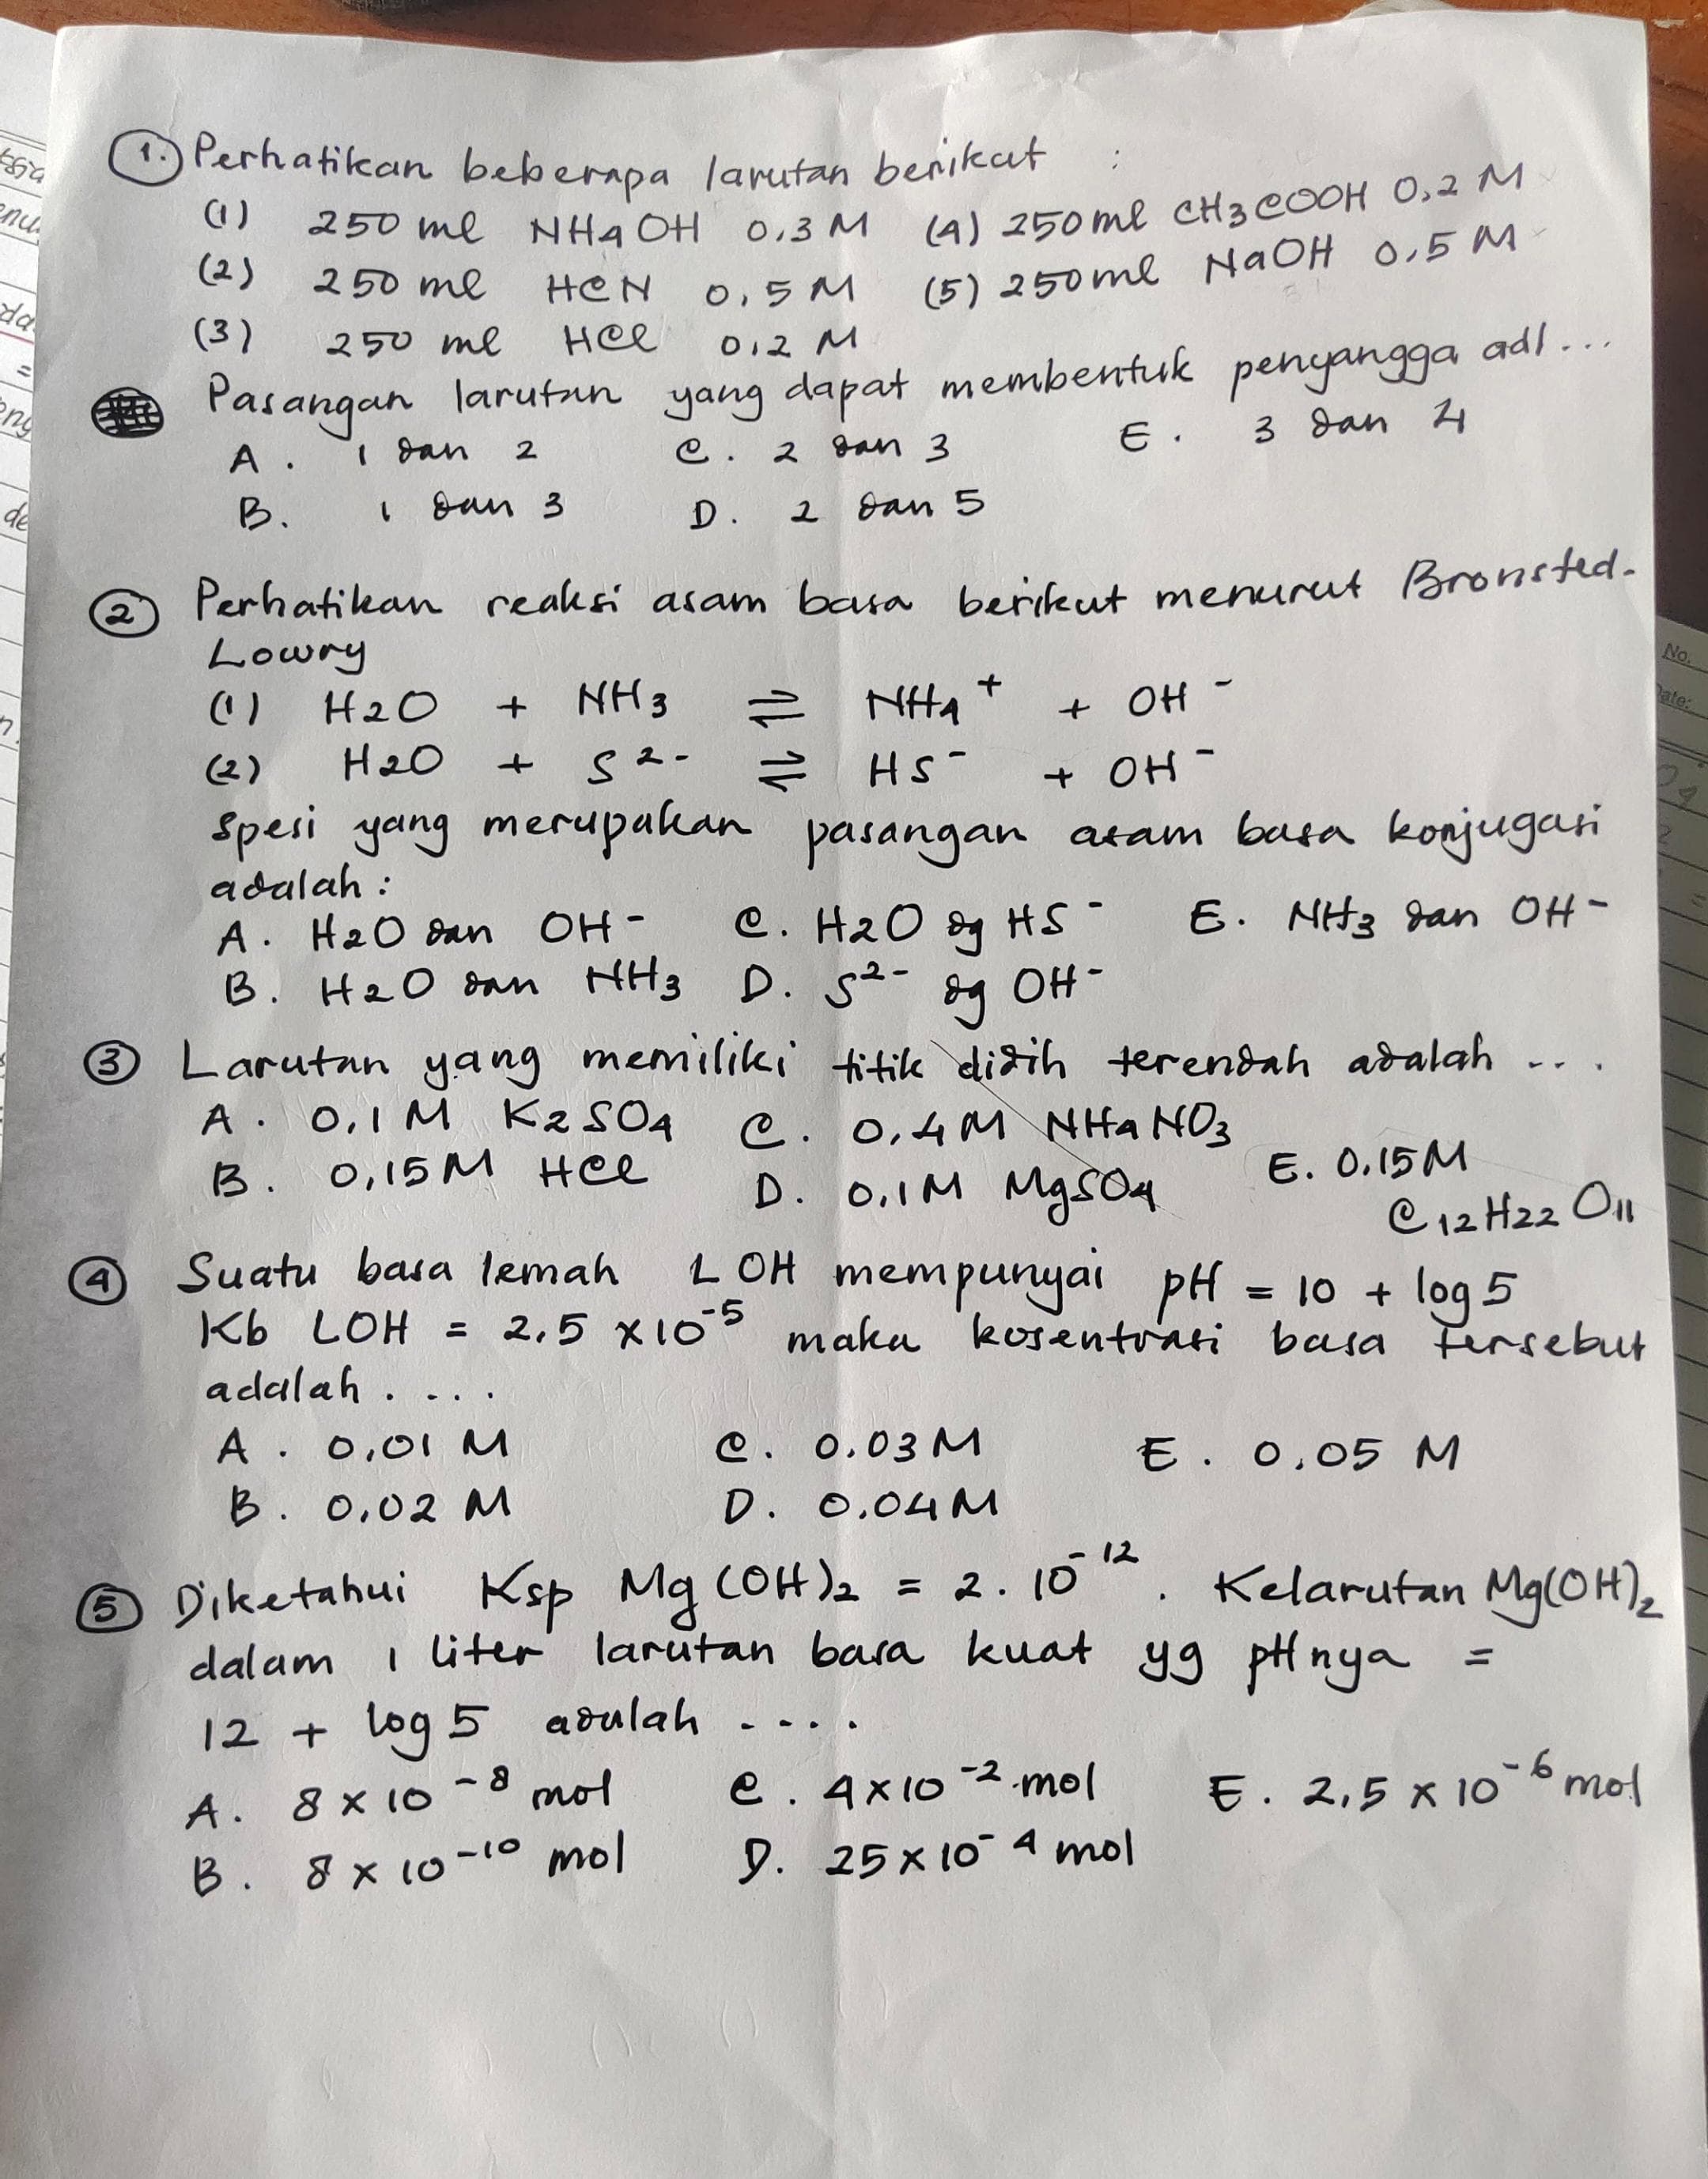 1. Perhatikan beberapa larutan berikut :
(1) 250 ml NH4OH 0,3 M (4) 250 ml CH3COOH 0,2 M
(2) 250 ml HCN 0,5 M (5) 250 ml NaOH 0,5 M
(3) 250 ml HCl 0,2 M
Pasangan larutan yang dapat membentuk penyangga adl ...
A. 1 dan 2 C. 2 dan 3 E. 3 dan 4
B. 1 dan 3 D. 2 dan 5
2 Perhatikan reaksi asam basa berikut menurut Bronsted-
Lowry
(1) H2O + NH3 ⇌ NH4+ + OH-
(2) H2O + S2- ⇌ HS- + OH-
spesi yang merupakan pasangan asam basa konjugasi
adalah :
A. H2O dan OH- C. H2O dg HS- E. NH3 dan OH-
B. H2O dan NH3 D. S2- dg OH-
3 Larutan yang memiliki titik didih terendah adalah ....
A. 0,1 M K2SO4 C. 0,4 M NH4NO3
B. 0,15 M HCl D. 0,1 M MgSO4 E. 0,15 M
C12H22O11
4 Suatu basa lemah LOH mempunyai pH = 10 + log 5
Kb LOH = 2,5 x 10-5 maka kosentrasi basa tersebut
adalah ....
A. 0,01 M C. 0,03 M E. 0,05 M
B. 0,02 M D. 0,04 M
5 Diketahui Ksp Mg(OH)2 = 2. 10-12. Kelarutan Mg(OH)2
dalam 1 liter larutan basa kuat yg pHnya =
12 + log 5 adalah ....
A. 8 x 10-8 mol C. 4 x 10-2 mol E. 2,5 x 10-6 mol
B. 8 x 10-10 mol D. 25 x 10-4 mol
No.
Date: